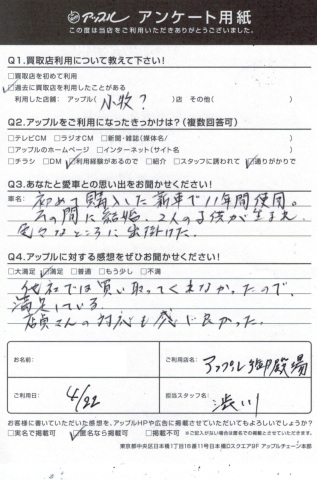 アップル アンケート用紙
この度は当店をご利用いただきありがとうございました。
Q1.買取店利用について教えて下さい!
□買取店を初めて利用
☑過去に買取店を利用したことがある
利用した店舗: アップル(小牧?)店 その他( )
Q2.アップルをご利用になったきっかけは?(複数回答可)
□テレビCM □ラジオCM □新聞・雑誌(媒体名/ )
□アップルのホームページ □インターネット(サイト名 )
□チラシ □DM ☑利用経験があるので □紹介 □スタッフに誘われて ☑通りがかりで
Q3.あなたと愛車との思い出をお聞かせください!
車名: 初めて購入した新車で11年間使用。
その間に結婚、2人の子供が生まれ
色々なところに出掛けた。
Q4.アップルに対する感想をぜひお聞かせください!
□大満足 ☑満足 □普通 □もう少し □不満
他社では買い取ってくれなかったので、
満足している。
店員さんの対応も感じ良かった。
お名前:
ご利用店名: アップル御殿場
ご利用日: 4/22
担当スタッフ名: 渋川
お客様に書いていただいた感想を、アップルHPや広告に掲載させていただいてもよろしいでしょうか?
□実名で掲載可 ☑匿名なら掲載可 □掲載不可 ※ご記入がない場合は匿名での掲載とさせていただきます。
東京都中央区日本橋1丁目16番11号日本橋Dスクエア9F アップルチェーン本部